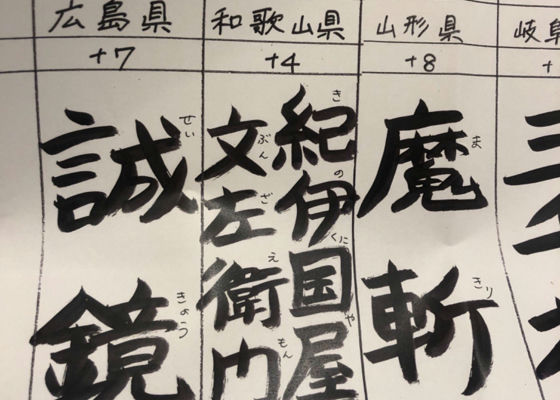 広島県
+7
誠鏡
せいきょう
和歌山県
+4
紀伊国屋
きのくにや
文左衛門
ぶんざえもん
山形県
+8
魔斬
まきり
岐阜
+